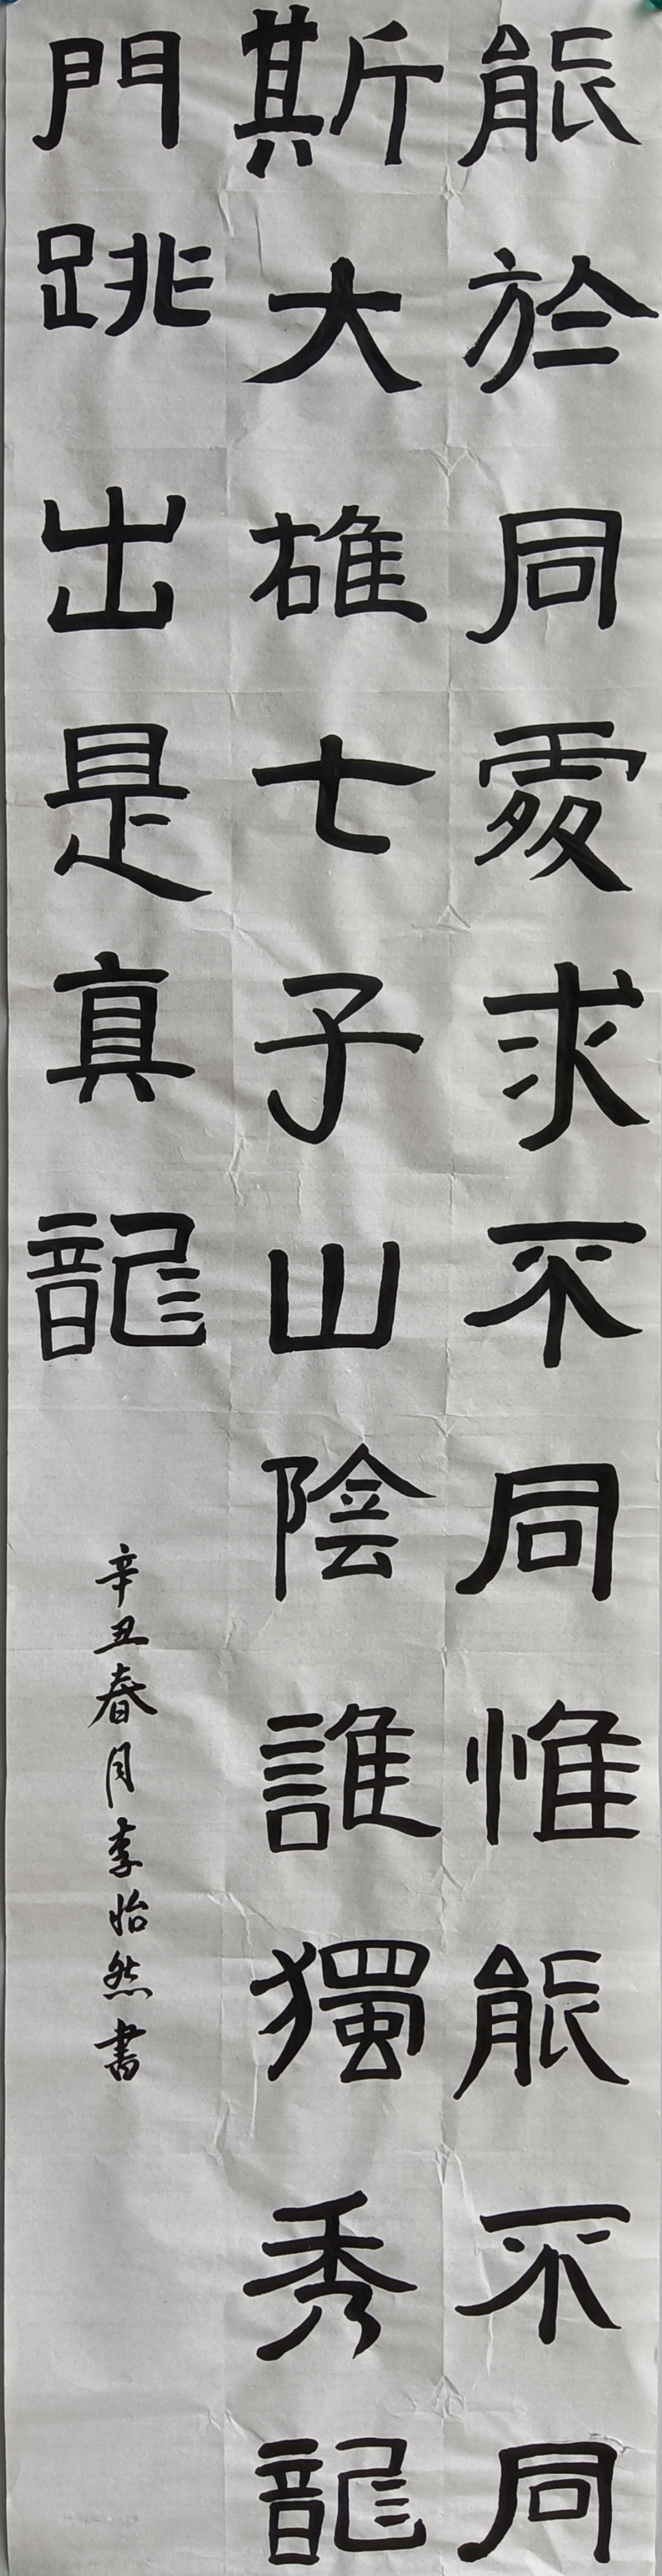 能於同處求不同惟能不同
斯大雄七子山陰誰獨秀龍
門跳出是真龍
辛丑春月李怡然書